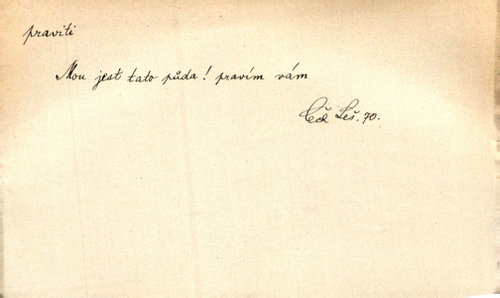 praviti
Mou jest tato půda! pravím vám
Čech Leš. 70.